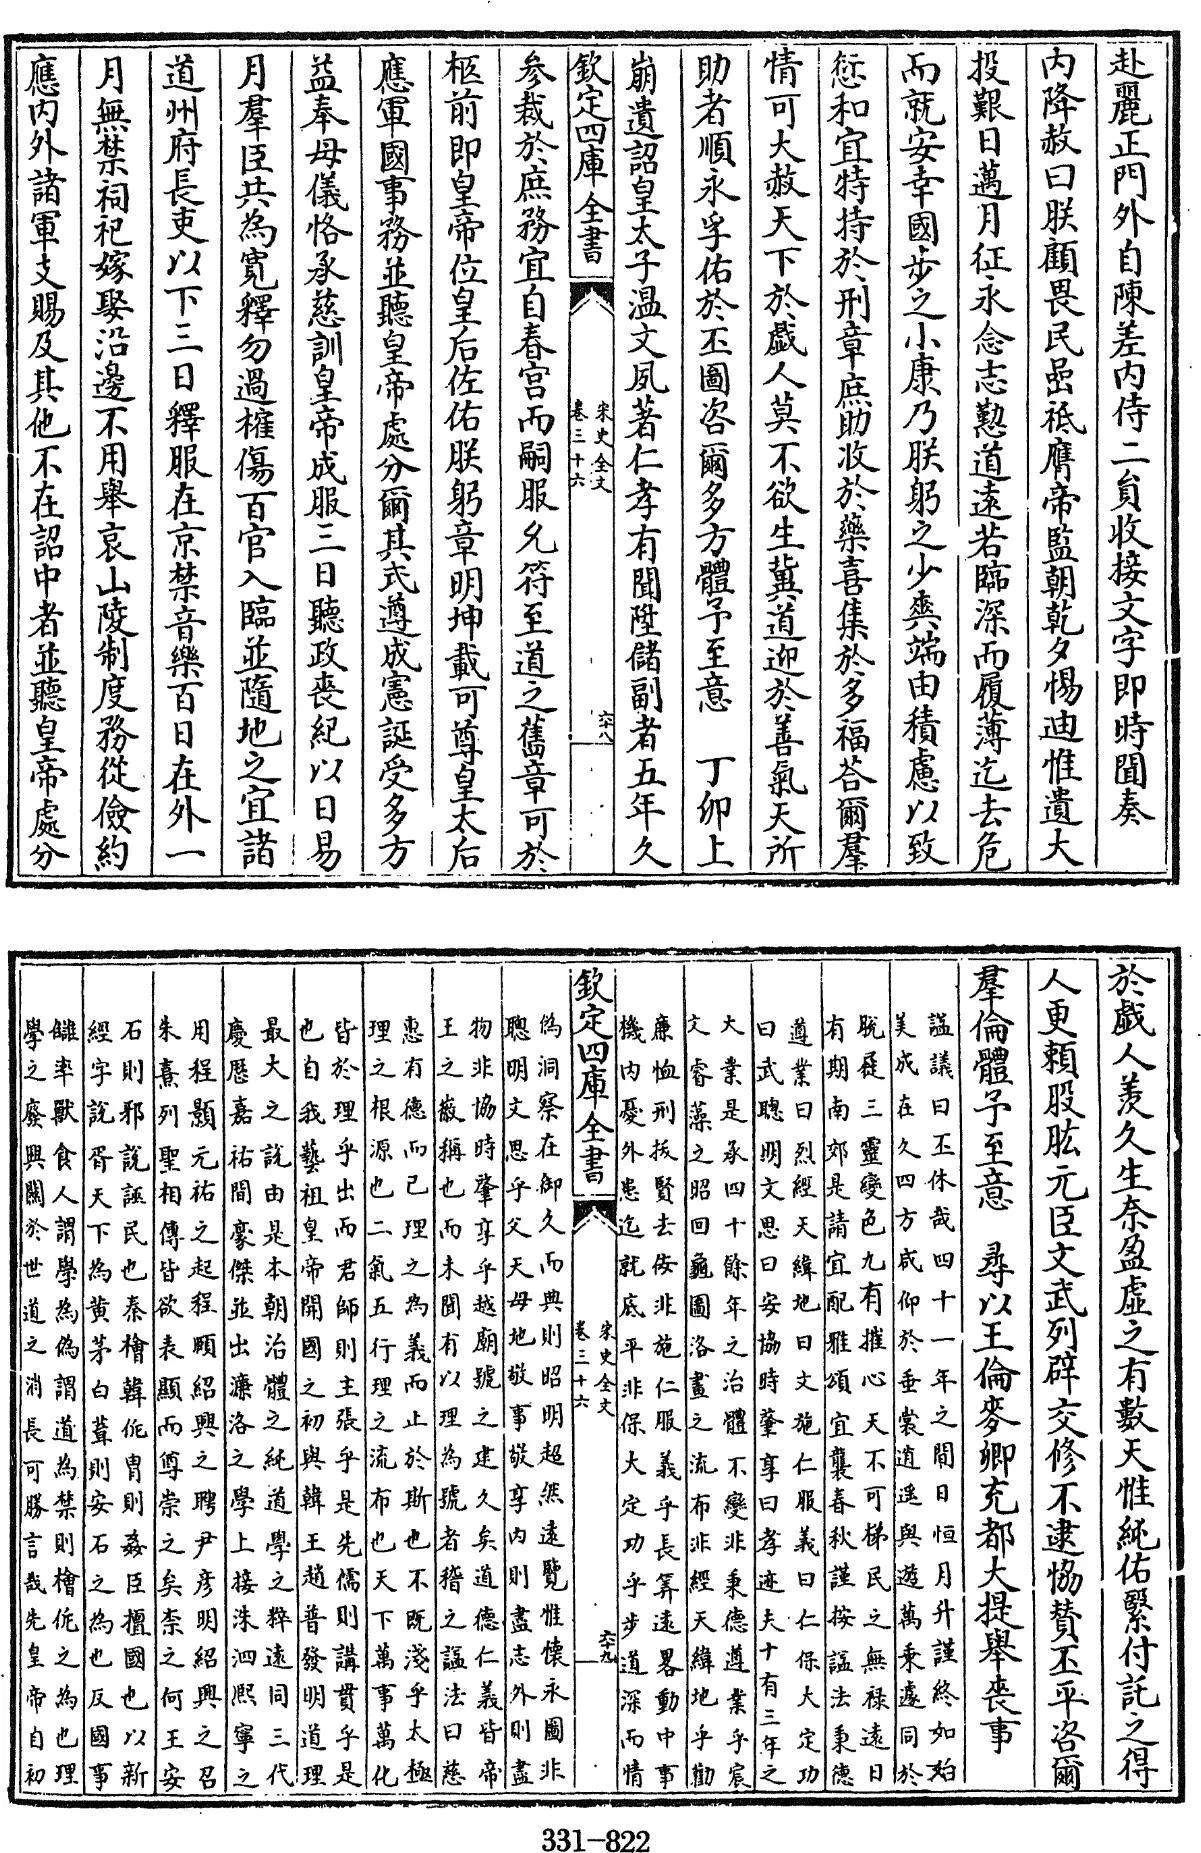 赴麗正門外自陳差内侍二員收接文字即時聞奏
内降赦曰朕顧畏民嵒祗膺帝監朝乾夕惕迪惟遺大
投艱日邁月征永念志懃道遠若臨深而履薄迄去危
而就安幸國步之小康乃朕躬之少爽端由積慮以致
愆和宜特持於刑章庶助收於藥喜集於多福荅爾羣
情可大赦天下於戲人莫不欲生冀道迎於善氣天所
助者順永孚佑於丕圖咨爾多方體予至意 丁卯上
崩遺詔皇太子温文夙著仁孝有聞陞儲副者五年久
欽定四庫全書
宋史全文
卷三十六
六十八
參裁於庶務宜自春宮而嗣服允符至道之舊章可於
柩前即皇帝位皇后佐佑朕躬章明坤載可尊皇太后
應軍國事務並聽皇帝處分爾其式遵成憲誕受多方
益奉母儀恪承慈訓皇帝成服三日聽政喪紀以日易
月羣臣共為寬釋勿過摧傷百官入臨並隨地之宜諸
道州府長吏以下三日釋服在京禁音樂百日在外一
月無禁祠祀嫁娶沿邊不用舉哀山陵制度務從儉約
應内外諸軍支賜及其他不在詔中者並聽皇帝處分
於戲人羨久生奈盈虛之有數天惟純佑緊付託之得
人更賴股肱元臣文武列辟交修不逮恊贊丕平咨爾
羣倫體予至意 尋以王倫麥卿充都大提舉喪事
諡議曰丕休哉四十一年之間日恒月升謹終如始
美成在久四方咸仰於垂裳道遥與遊萬乗遽同於
脱屣三靈變色九有摧心天不可梯民之無禄遠日
有期南郊是請宜配雅頌宜襲春秋謹按諡法秉德
遵業曰烈經天緯地曰文施仁服義曰仁保大定功
曰武聰明文思曰安協時肇享曰孝迹夫十有三年之
大業是承四十餘年之治體不變非秉德遵業乎宸
文睿藻之昭回龜圖洛畫之流布非經天緯地乎勸
廉恤刑拔賢去佞非施仁服義乎長筭遠畧動中事
機内憂外患迄就底平非保大定功乎步道深而情
欽定四庫全書
宋史全文
卷三十六
六十九
偽洞察在御久而典則昭明超然遠覽惟懷永圖非
聰明文思乎父天母地敬事敬享内則盡志外則盡
物非協時肇享乎越廟號之建久矣道德仁義皆帝
王之徽稱也而未聞有以理為號者稽之諡法曰慈
惠有德而已理之為義而止於斯也不既淺乎太極
理之根源也二氣五行理之流布也天下萬事萬化
皆於理乎出而君師則主張乎是先儒則講貫乎是
也自我藝祖皇帝開國之初與韓王趙普發明道理
最大之説由是本朝治體之純道學之粹遠同三代
慶歷嘉祐間豪傑並出濂洛之學上接洙泗熙寧之
用程顥元祐之起程頤紹興之聘尹彦明紹興之召
朱熹列聖相傳皆欲表顯而尊崇之矣柰之何王安
石則邪説誣民也秦檜韓侂胄則姦臣擅國也以新
經字説胥天下為黄茅白葦則安石之為也反國事
讎率獸食人謂學為偽謂道為禁則檜侂之為也理
學之廢興關於世道之消長可勝言哉先皇帝自初
331-822